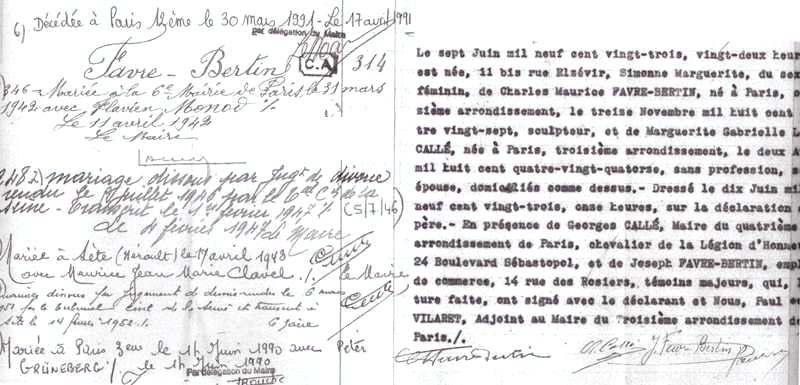 6) Décédée à Paris 12ème le 30 mars 1991 - Le 17 avril 1991
par délégation du Maire
C.A
Favre-Bertin
314
346 - Mariée à la 6e Mairie de Paris le 31 mars
1942 avec Flavien Monod ./.
Le 11 avril 1942
Le Maire
2.482) mariage dissous par jugt de divorce
rendu le 5 juillet 1946 par le
Seine - transcrit le 1er février 1947 ./.
(5/7/46)
Le 4 février 1947 Le Maire
Mariée à Sète (Hérault) le 17 avril 1943
avec Maurice Jean Marie Clavel ./. Le Maire
mariage dissous par jugement de divorce rendu le 6 mars
951 par le tribunal civil de la Seine et transcrit à
Sète le 14 février 1952 ./.
Mariée à Paris 3ème le 14 Juin 1990 avec Peter
GRÜNEBERG ./. le 14 Juin 1990
Par délégation du Maire
Le sept Juin mil neuf cent vingt-trois, vingt-deux heur
est née, 11 bis rue Elsévir, Simonne Marguerite, du sex
féminin, de Charles Maurice FAVRE-BERTIN, né à Paris,
sième arrondissement, le treize Novembre mil huit cent
tre vingt-sept, sculpteur, et de Marguerite Gabrielle L
CALLÉ, née à Paris, troisième arrondissement, le deux A
mil huit cent quatre-vingt-quatorze, sans profession, s
épouse, domiciliés comme dessus.- Dressé le dix Juin mi
neuf cent vingt-trois, onze heures, sur la déclaration
père.- En présence de Georges CALLÉ, Maire du quatrième
arrondissement de Paris, chevalier de la Légion d'Honne
24 Boulevard Sébastopol, et de Joseph FAVRE-BERTIN, empl
de commerce, 14 rue des Rosiers, témoins majeurs, qui, l
ture faite, ont signé avec le déclarant et Nous, Paul
VILARET, Adjoint au Maire du Troisième arrondissement de
Paris./.
J. Favre Bertin